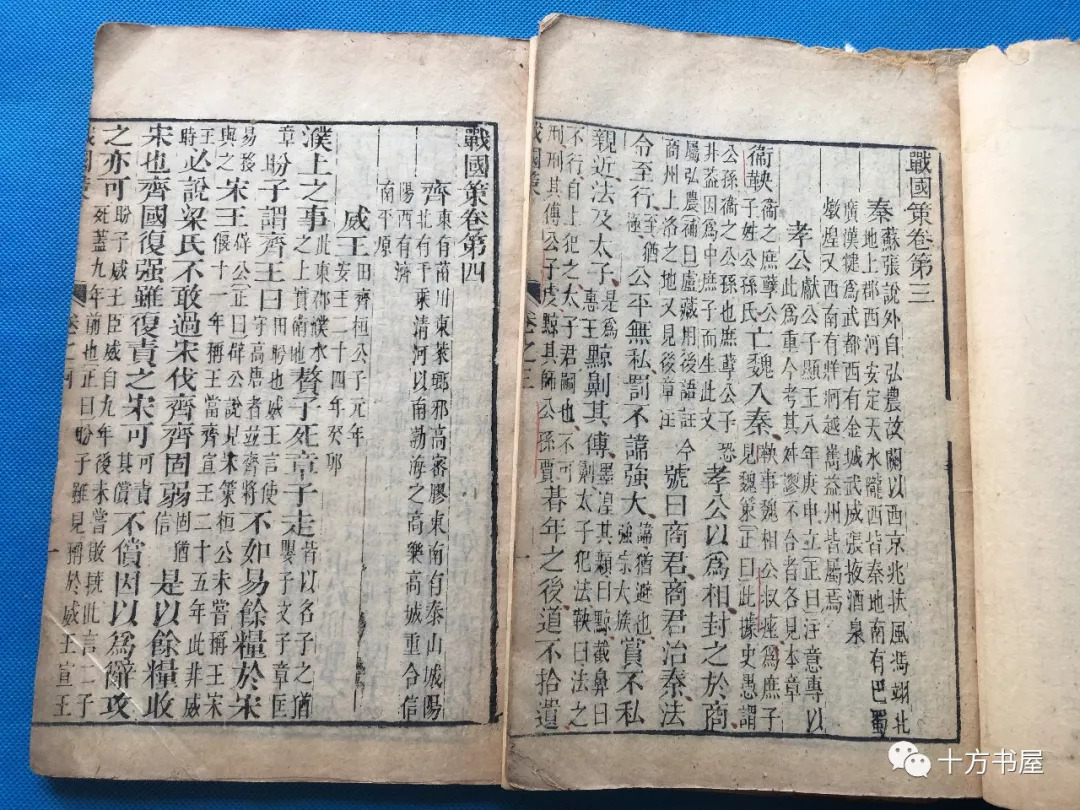 戰國策卷第三
秦蘇張說外自弘農故關以西京兆扶風馮翊北地上郡西河安定天水隴西皆秦地南有巴蜀
廣漢犍爲武都西有金城武威張掖酒泉燉煌又西南有牂牁越嶲益州皆屬焉
孝公獻公子顯王八年庚申立正曰注意專以此爲重今考其舛謬不合者各見本章
衞鞅衞之庶孽公子姓公孫氏亡魏入秦鞅事魏相公叔痤爲庶子見魏策正曰此據史愚謂
公孫衞之公孫也庶孽公子恐非蓋因爲中庶子而生此文孝公以爲相封之於商
屬弘農補曰盧藏用後語註今商州上洛之地又見後章註號曰商君商君治秦法
令至行至猶極公平無私罰不諱強大諱猶避也強宗大族賞不私
親近法及太子是爲惠王黥劓其傅墨湟其顙曰黥截鼻曰劓太子犯法鞅曰法之
不行自上犯之太子君嗣也不可刑刑其傅公子虔黥其師公孫賈朞年之後道不拾遺
戰國策 卷之三 一
戰國策卷第四
齊東有菑川東萊瑯邪高密膠東南有泰山城陽北有千乘清河以南勃海之高樂高城重合信
陽西有濟南平原
威王田齊桓公子元年安王二十四年癸卯
濮上之事此東郡濮水之上實南地贅子死章子走皆以名子之猶嬰子文子章匡
章盼子謂齊王曰田盼也威王言使守高唐者並齊將不如易餘糧於宋
易移與之宋王佯公正曰偉公說見宋策桓公未嘗稱王宋偃十一年稱王當齊宣王二十五年此非威
王時必說梁氏不敢過宋伐齊齊固弱固猶信是以餘糧收
宋也齊國復强雖復責之宋可可責其償不償因以爲辭攻
之亦可盼子威王臣威自九年後未嘗敗挫此言二子死蓋九年前也正曰盼子雖見稱於威王宣王
戰國策 卷之四 一
十方书屋